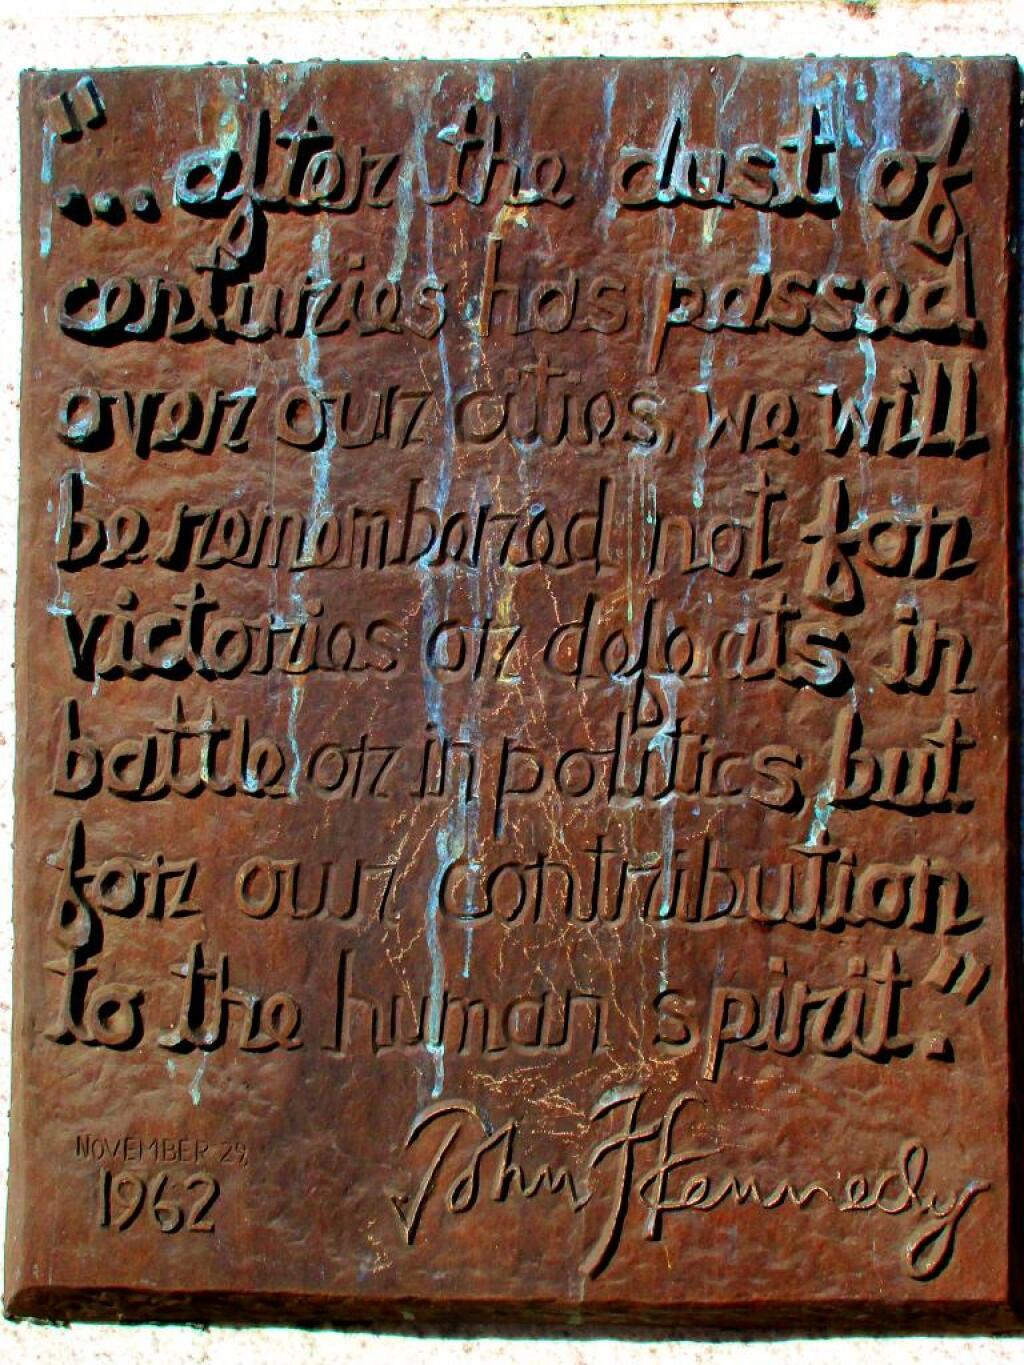 "... after the dust of
centuries has passed
over our cities, we will
be remembered not for
victories or defeats in
battle or in politics, but
for our contribution
to the human spirit."
NOVEMBER 29,
1962
John F Kennedy